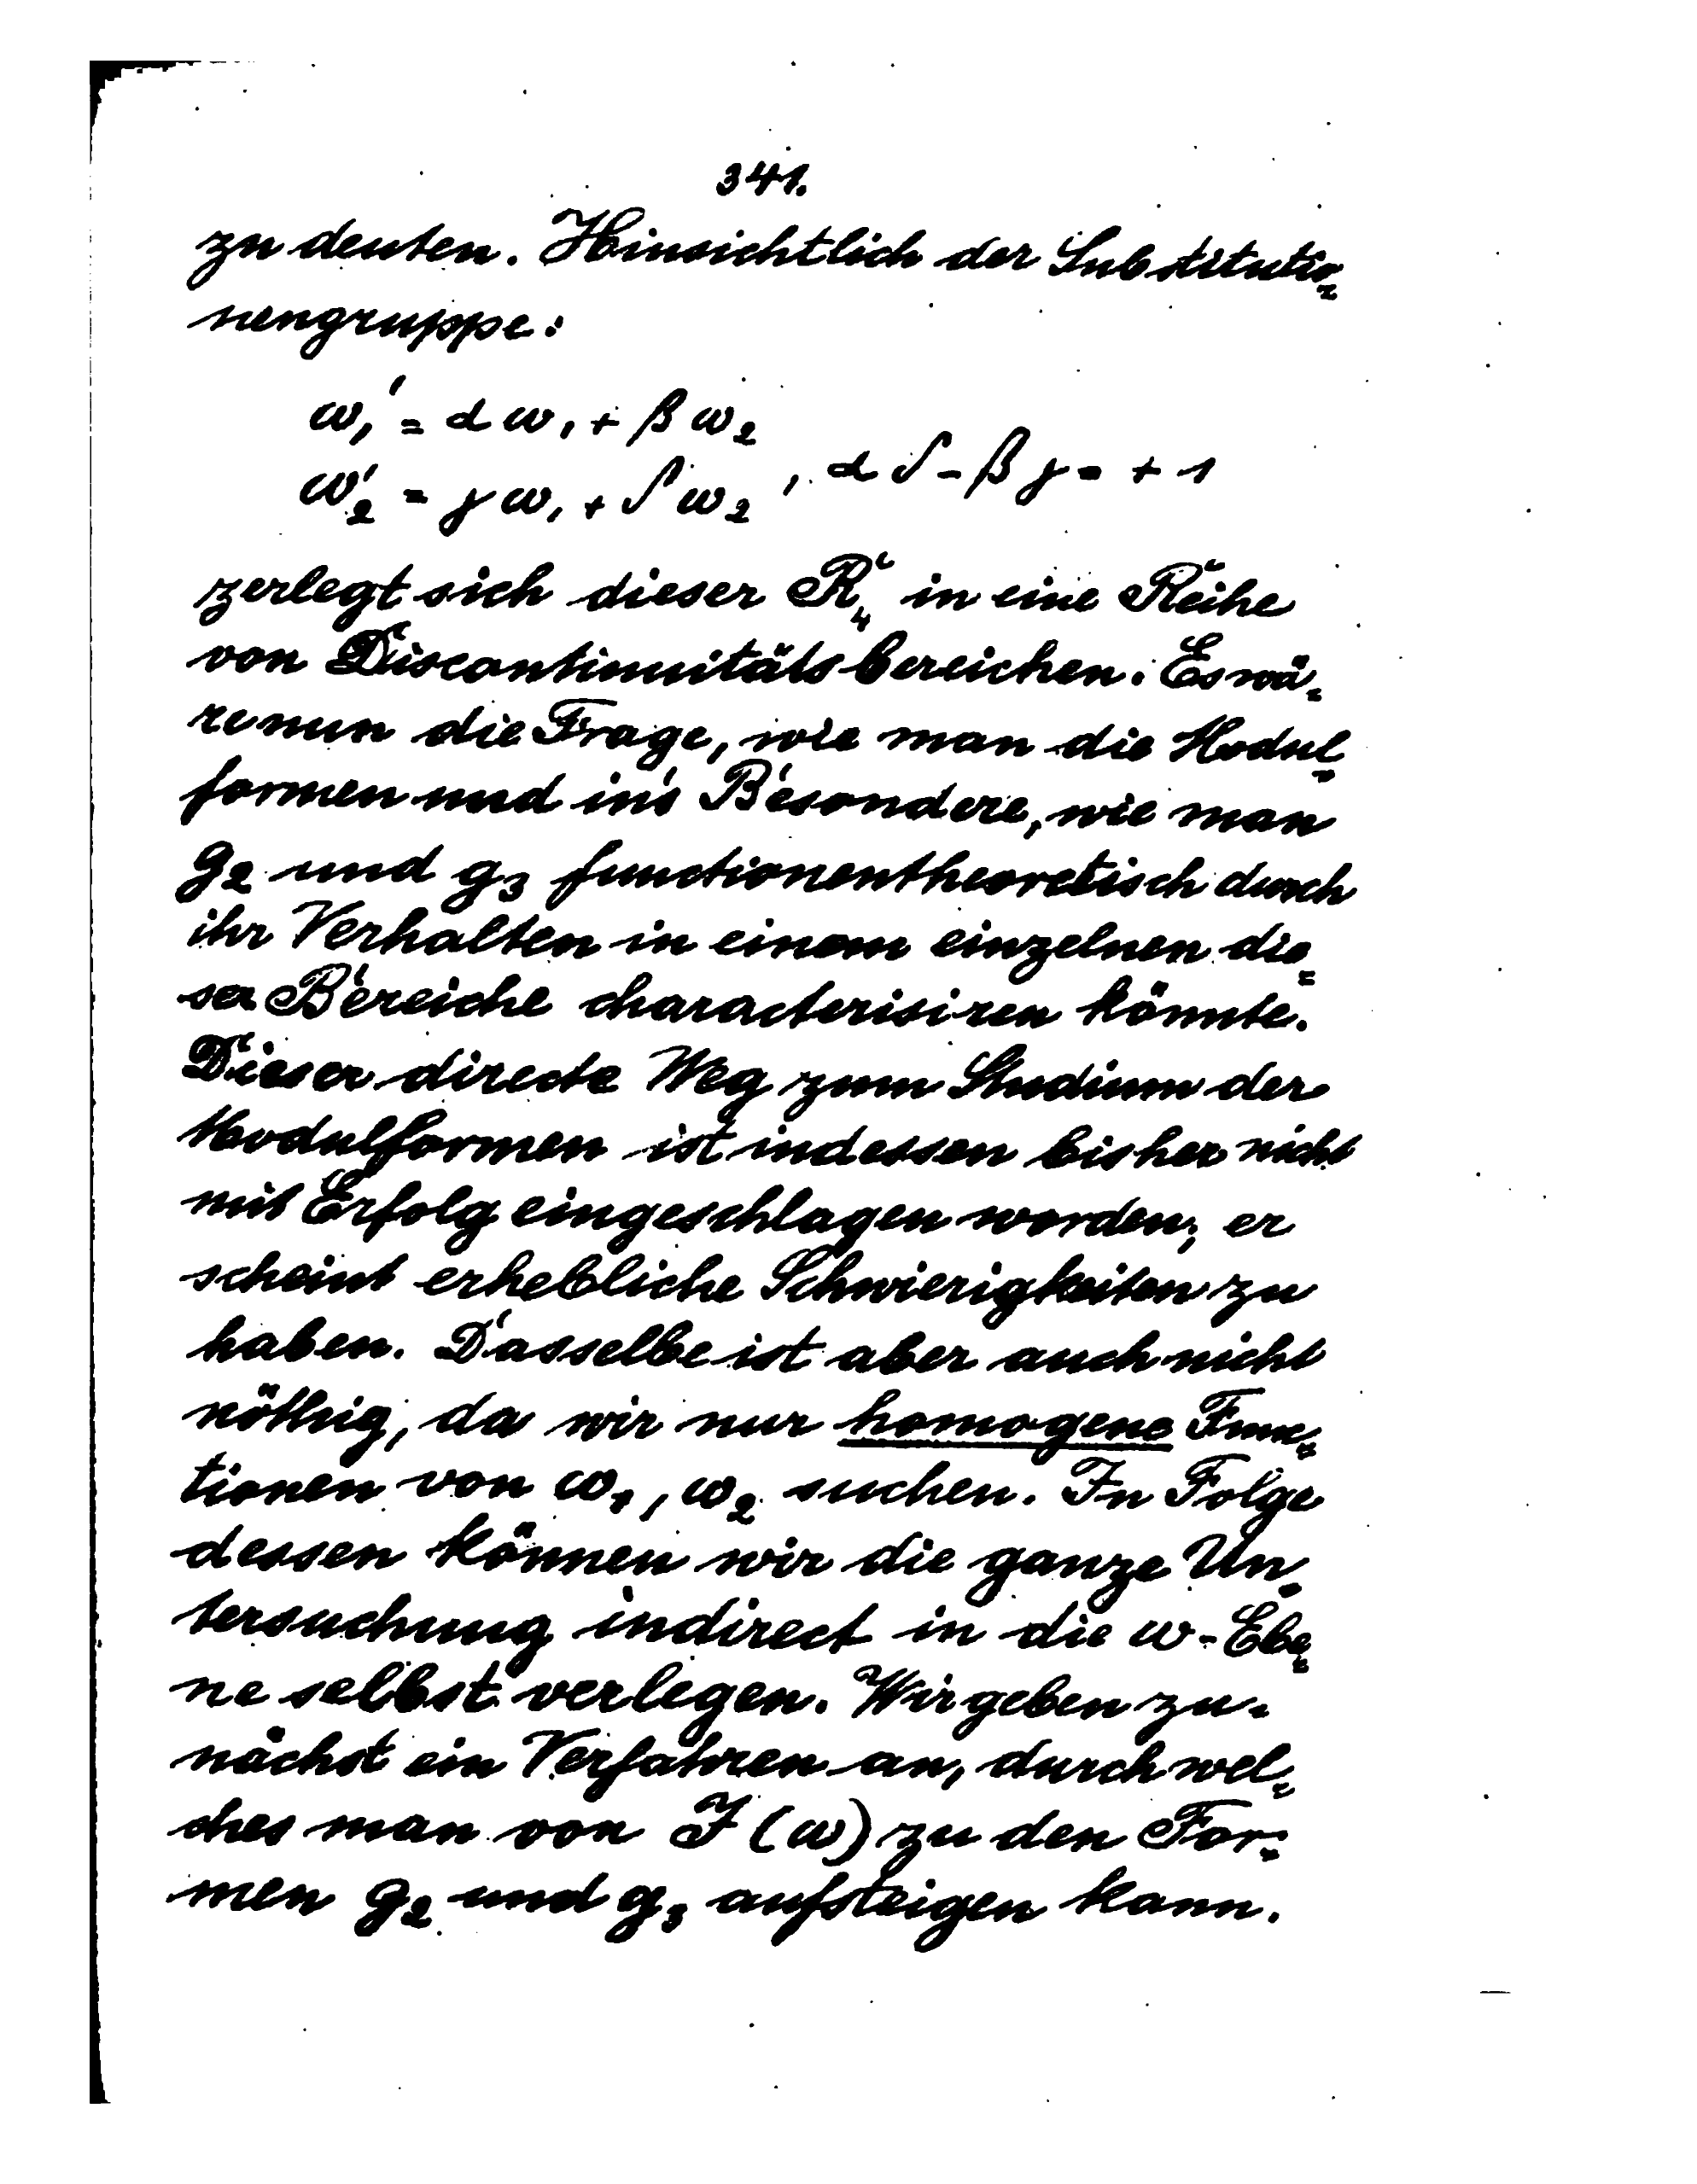 341.
zu deuten. Hinsichtlich der Substitutio=
nengruppe:
ω₁' = α ω₁ + β ω₂
ω₂' = γ ω₁ + δ ω₂ , α δ - β γ = + 1
zerlegt sich dieser R₄ in eine Reihe
von Discontinuitätsbereichen. Es wä=
re nun die Frage, wie man die Modul=
formen und in's Besondere, wie man
g₂ und g₃ functionentheoretisch durch
ihr Verhalten in einem einzelnen die=
ser Bereiche characterisiren könnte.
Dieser directe Weg zum Studium der
Modulformen ist indessen bisher nicht
mit Erfolg eingeschlagen worden; er
scheint erhebliche Schwierigkeiten zu
haben. Dasselbe ist aber auch nicht
nöthig, da wir nur homogene Func=
tionen von ω₁, ω₂ suchen. In Folge
dessen können wir die ganze Un=
tersuchung indirect in die ω-Ebe=
ne selbst verlegen. Wir geben zu=
nächst ein Verfahren an, durch wel=
ches man von J (ω) zu den For=
men g₂ und g₃ aufsteigen kann.